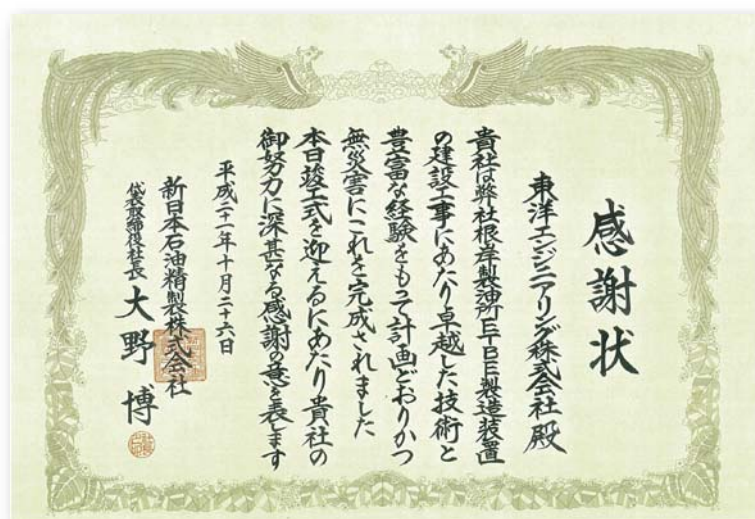 感謝状
東洋エンジニアリング株式会社殿
貴社は弊社根岸製油所ETBE製造装置
の建設工事にあたり卓越した技術と
豊富な経験をもって計画どおりかつ
無災害にこれを完成されました
本日竣工式を迎えるにあたり貴社の
御努力に深甚なる感謝の意を表します
平成二十一年十月二十六日
新日本石油精製株式会社
代表取締役社長 大野博